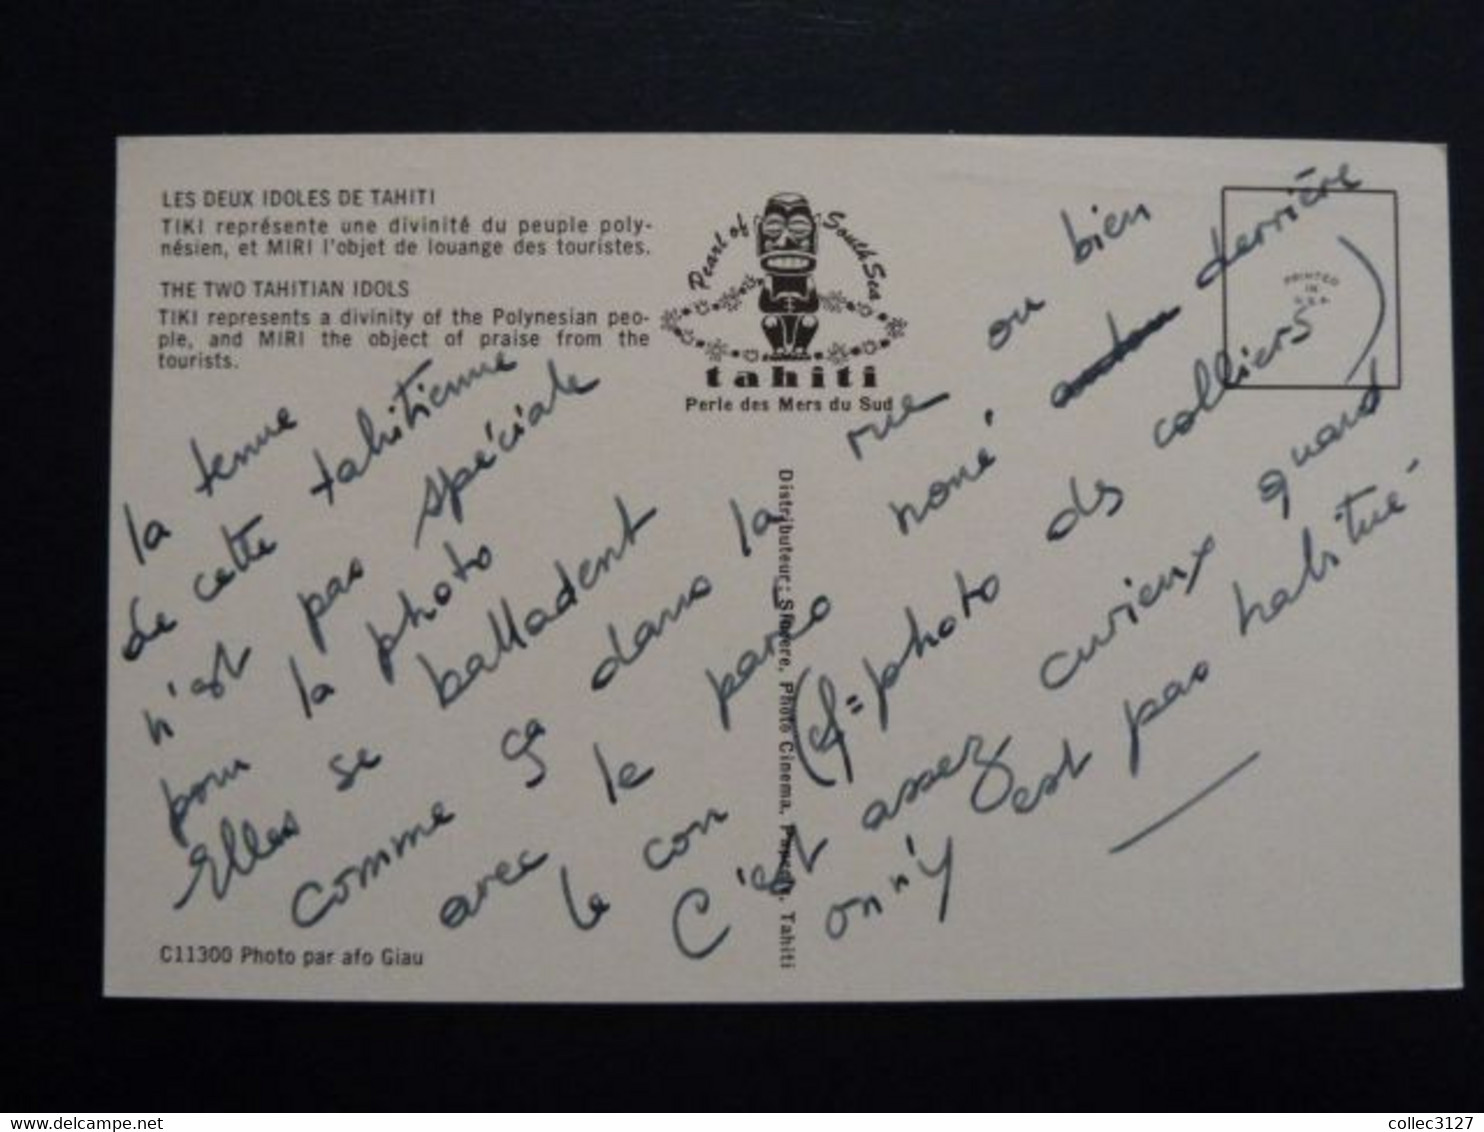 LES DEUX IDOLES DE TAHITI
TIKI représente une divinité du peuple poly-
nésien, et MIRI l'objet de louange des touristes.
THE TWO TAHITIAN IDOLS
TIKI represents a divinity of the Polynesian peo-
ple, and MIRI the object of praise from the
tourists.
Pearl of South Sea
tahiti
Perle des Mers du Sud
PRINTED
IN
U.S.A.
la tenue
de cette tahitienne
n'est pas spéciale
pour la photo
Elles se balladent
comme ça dans la rue ou bien
avec le pareo noué derrière
le cou (cf = photo des colliers)
C'est assez curieux quand
on n'y est pas habitué -
Distributeur: Sincere, Photo Cinema, Papeete, Tahiti
C11300 Photo par afo Giau
collec3127